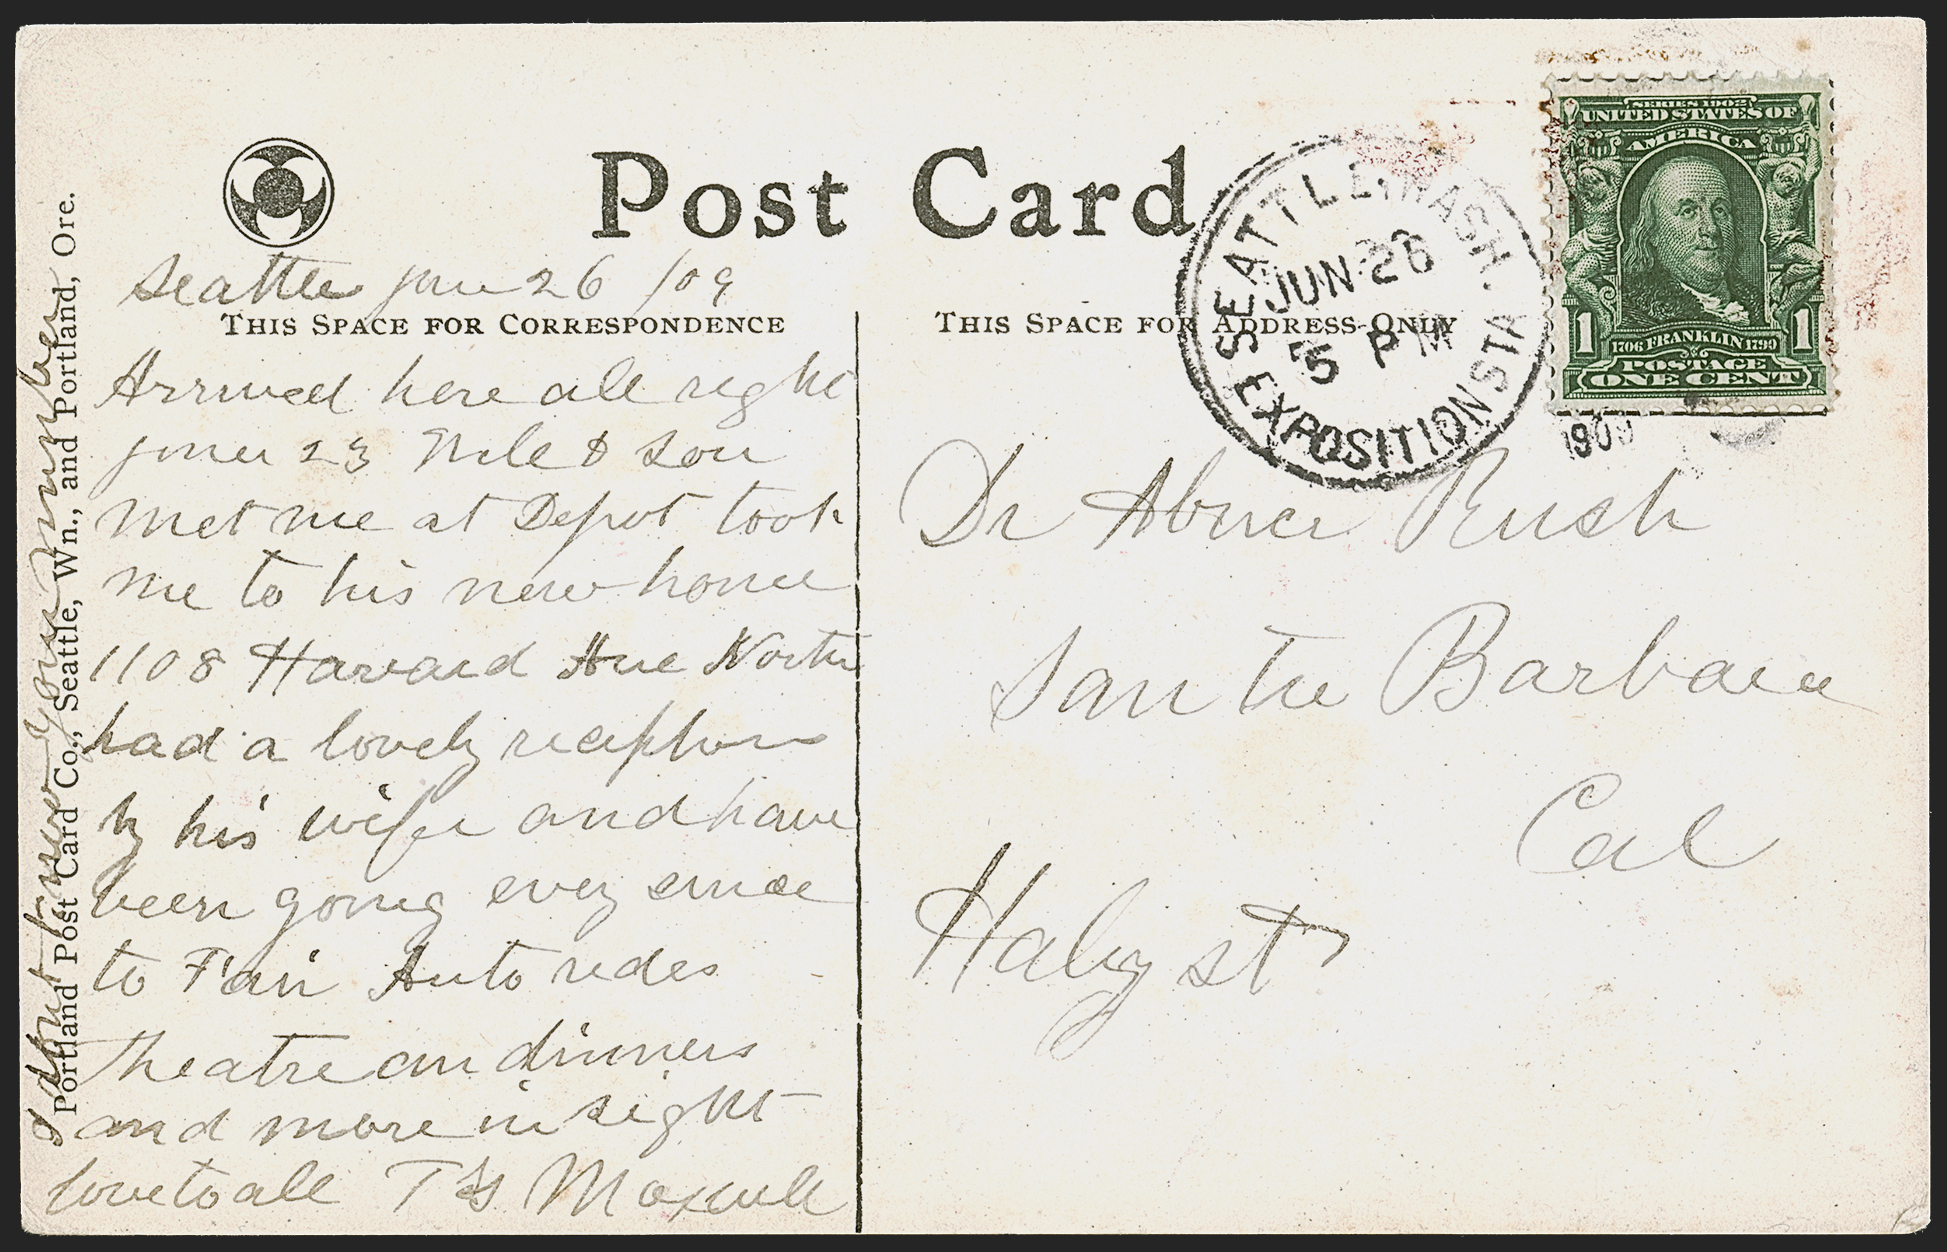 Post Card
Seattle June 26 /09
THIS SPACE FOR CORRESPONDENCE
Arrived here all right
June 23 & son
met me at Depot took
me to his new home
1108 Harvard Ave North
had a lovely reception
by his wife and have
been going every since
to Fair Auto rides
Theatre an dinners
and more in sight
love to all T Maxwell
I dont know your number
Portland Post Card Co., Seattle, Wn., and Portland, Ore.
THIS SPACE FOR ADDRESS ONLY
SEATTLE, WASH.
JUN 26
5 PM
EXPOSITION STA.
1909
SERIES 1902
UNITED STATES OF
AMERICA
1 1706 FRANKLIN 1790 1
POSTAGE
ONE CENT
Dr Abner Rush
Santa Barbara
Cal
Haley st